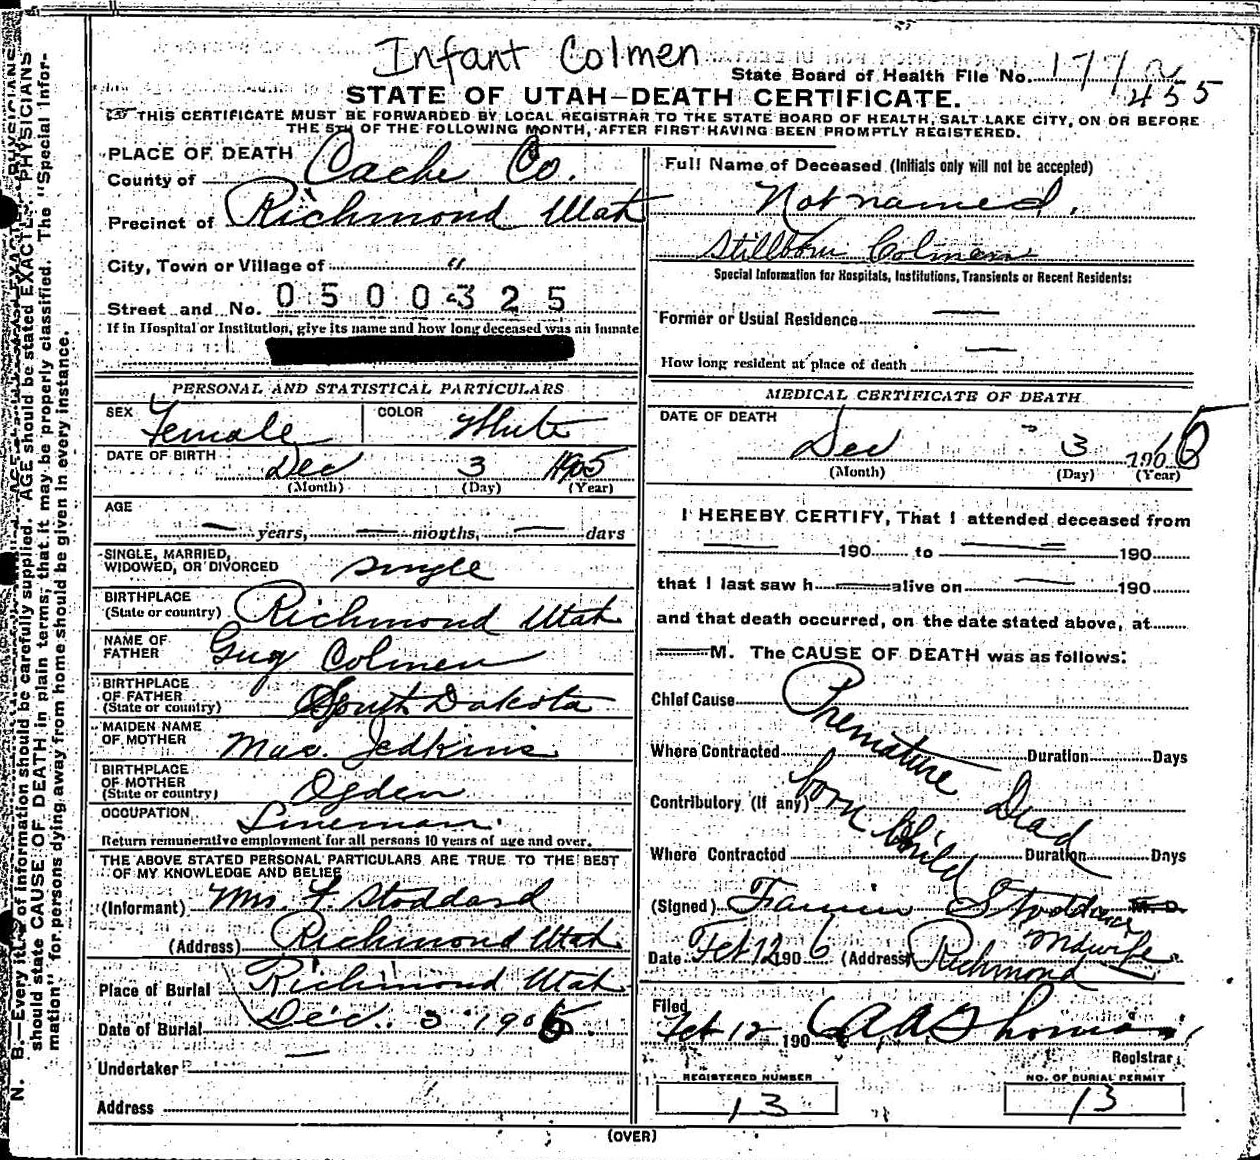 Infant Colmen
State Board of Health File No. 177
455
STATE OF UTAH—DEATH CERTIFICATE.
THIS CERTIFICATE MUST BE FORWARDED BY LOCAL REGISTRAR TO THE STATE BOARD OF HEALTH, SALT LAKE CITY, ON OR BEFORE
THE 5TH OF THE FOLLOWING MONTH, AFTER FIRST HAVING BEEN PROMPTLY REGISTERED.
PLACE OF DEATH
County of Cache Co.
Precinct of Richmond Utah
City, Town or Village of "
Street and No. 0500325
If in Hospital or Institution, give its name and how long deceased was an inmate
PERSONAL AND STATISTICAL PARTICULARS
SEX Female COLOR White
DATE OF BIRTH Dec 3 1905
(Month) (Day) (Year)
AGE
— years, — months, — days
SINGLE, MARRIED,
WIDOWED, OR DIVORCED single
BIRTHPLACE
(State or country) Richmond Utah
NAME OF
FATHER Guy Colmen
BIRTHPLACE
OF FATHER
(State or country) South Dakota
MAIDEN NAME
OF MOTHER Mae. Jedkins
BIRTHPLACE
OF MOTHER
(State or country) Ogden
OCCUPATION Lineman.
Return remunerative employment for all persons 10 years of age and over.
THE ABOVE STATED PERSONAL PARTICULARS ARE TRUE TO THE BEST
OF MY KNOWLEDGE AND BELIEF
(Informant) Mrs. F Stoddard
(Address) Richmond Utah
Place of Burial Richmond Utah
Date of Burial Dec. 3 1905.
Undertaker —
Address
Full Name of Deceased (Initials only will not be accepted)
Not named.
Stillborn Colmen
Special Information for Hospitals, Institutions, Transients or Recent Residents:
Former or Usual Residence —
How long resident at place of death —
MEDICAL CERTIFICATE OF DEATH
DATE OF DEATH
Dec 3 1905
(Month) (Day) (Year)
I HEREBY CERTIFY, That I attended deceased from
— 190 to — 190
that I last saw h — alive on — 190
and that death occurred, on the date stated above, at
— M. The CAUSE OF DEATH was as follows:
Chief Cause Premature Dead
Where Contracted Duration Days
Contributory (If any) born Child
Where Contracted Duration Days
(Signed) Fannie Stoddard M. D.
midwife.
Date Feb 12 1906 (Address) Richmond
Filed
Feb 12 1906 A. A. Thomas
Registrar
REGISTERED NUMBER
13
NO. OF BURIAL PERMIT
13
(OVER)
N. B.—Every item of information should be carefully supplied. AGE should be stated EXACTLY. PHYSICIANS
should state CAUSE OF DEATH in plain terms, that it may be properly classified. The "Special Infor-
mation" for persons dying away from home should be given in every instance.